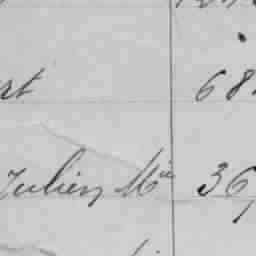 rt 68
Julien Mie 36